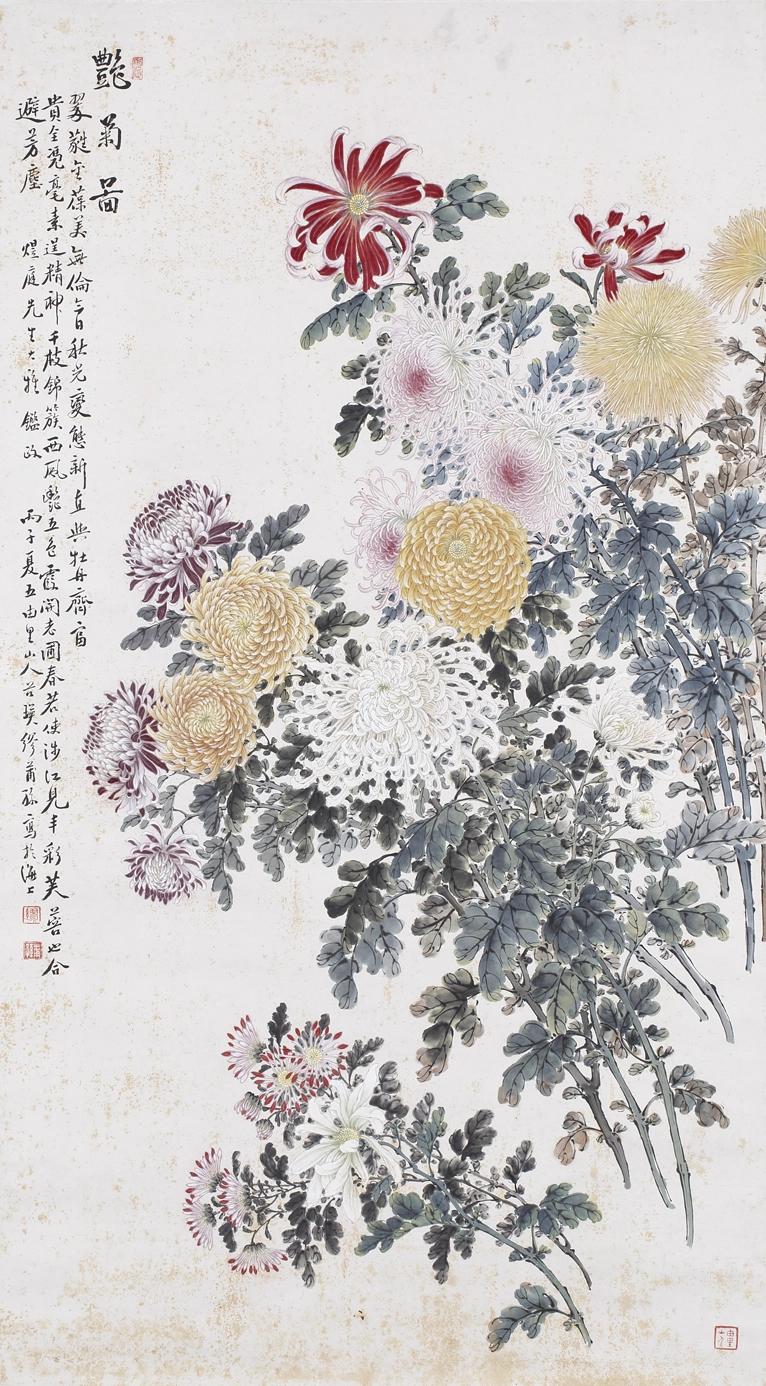 豔菊啚
翠蕤金葆美無倫今日秋光變態新直與牡丹齊富
貴全憑毫素逞精神千枝錦簇西風艷五色霞開老圃春若使涉江見丰彩芙蓉也合
避芳塵 煜庭先生大雅鑑政 丙子夏五由里山人谷瑛繆莆孫寫於海上
由里山人